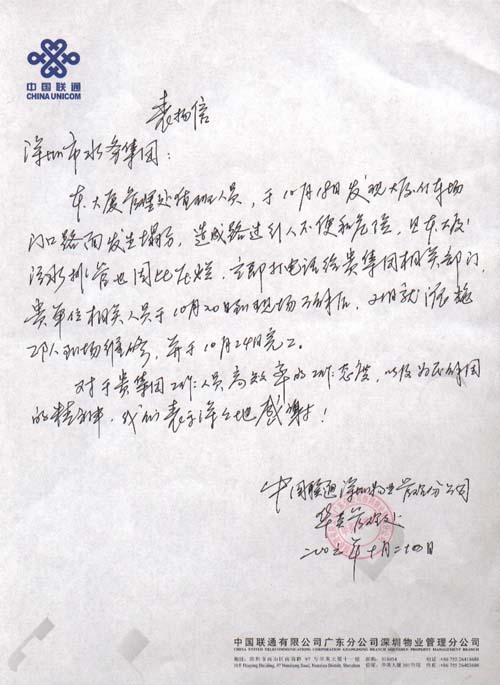 中国联通
CHINA UNICOM
表扬信
深圳市水务集团：
本大厦管理处值班人员，于10月18日发现大厦停车场
门口路面发生塌方，造成路过行人不便和危险，且本大厦
污水排管也因此压烂，立即打电话给贵集团相关部门，
贵单位相关人员于10月20日到现场了解后，21日就派施
工人到场维修，并于10月24日完工。
对于贵集团工作人员高效率的工作态度，以及为民解困
的精神，我们表示深深地感谢！
中国联通深圳物业管理分公司
华英管理处
十月二十四日
中国联通有限公司广东分公司深圳物业管理分公司
CHINA UNITED TELECOMMUNICATIONS CORPORATION GUANGDONG BRANCH SHENZHEN PROPERTY MANAGEMENT BRANCH